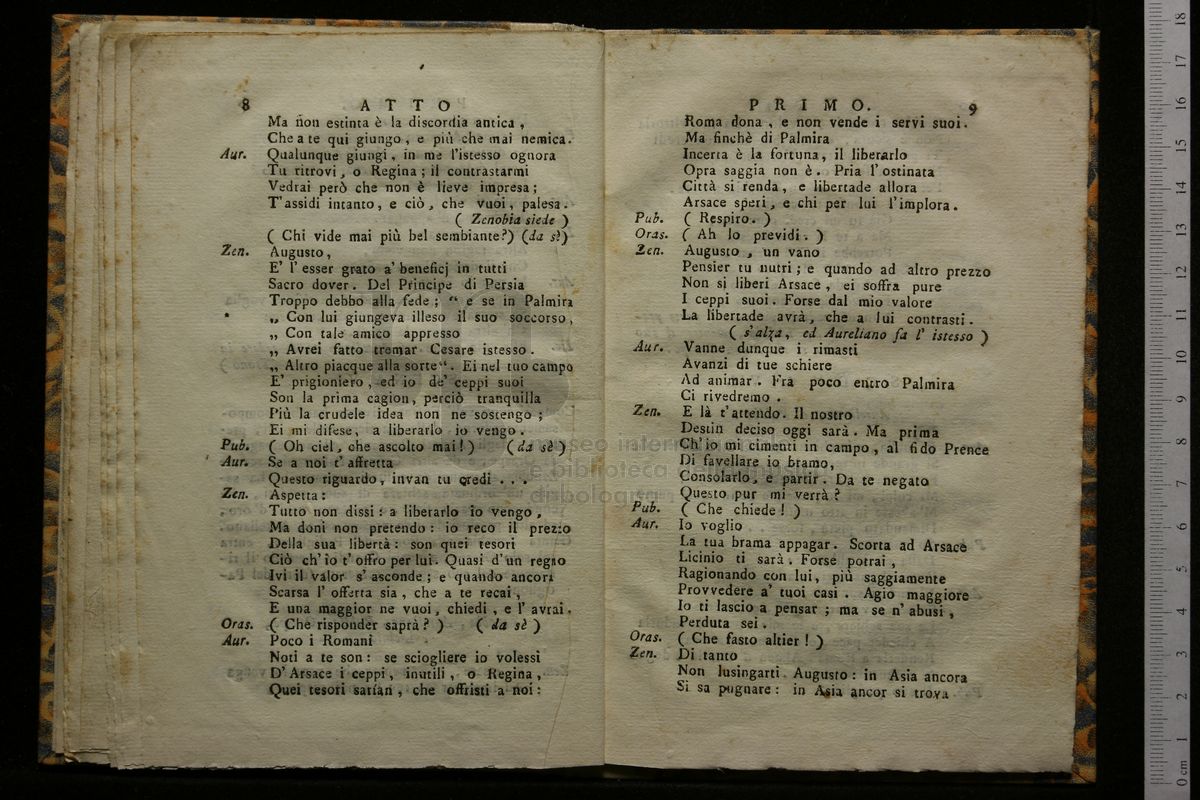 8 ATTO
Ma non estinta è la discordia antica ,
Che a te qui giungo , e più che mai nemica.
Aur. Qualunque giungi , in me l'istesso ognora
Tu ritrovi , o Regina ; il contrastarmi
Vedrai però che non è lieve impresa ;
T'assidi intanto , e ciò , che vuoi , palesa.
( Zenobia siede )
( Chi vide mai più bel sembiante?) (da sè)
Zen. Augusto ,
E' l' esser grato a' beneficj in tutti
Sacro dover . Del Principe di Persia
Troppo debbo alla fede ; “ e se in Palmira
„ Con lui giungeva illeso il suo soccorso ,
„ Con tale amico appresso
„ Avrei fatto tremar Cesare istesso .
„ Altro piacque alla sorte“ . Ei nel tuo campo
E' prigioniero , ed io de' ceppi suoi
Son la prima cagion , perciò tranquilla
Più la crudele idea non ne sostengo ;
Ei mi difese , a liberarlo io vengo .
Pub. ( Oh ciel , che ascolto mai ! ) (da sè)
Aur. Se a noi t' affretta
Questo riguardo , invan tu credi . . .
Zen. Aspetta :
Tutto non dissi : a liberarlo io vengo ,
Ma doni non pretendo : io reco il prezzo
Della sua libertà : son quei tesori
Ciò ch' io t' offro per lui . Quasi d'un regno
Ivi il valor s' asconde ; e quando ancora
Scarsa l' offerta sia , che a te recai ,
E una maggior ne vuoi , chiedi , e l' avrai .
Oras. ( Che risponder saprà ? ) ( da sè )
Aur. Poco i Romani
Noti a te son : se sciogliere io volessi
D' Arsace i ceppi , inutili , o Regina ,
Quei tesori sarian , che offristi a noi :
PRIMO. 9
Roma dona , e non vende i servi suoi .
Ma finchè di Palmira
Incerta è la fortuna , il liberarlo
Opra saggia non è . Pria l' ostinata
Città si renda , e libertade allora
Arsace speri , e chi per lui l'implora .
Pub. ( Respiro . )
Oras. ( Ah lo previdi . )
Zen. Augusto , un vano
Pensier tu nutri ; e quando ad altro prezzo
Non si liberi Arsace , ei soffra pure
I ceppi suoi . Forse dal mio valore
La libertade avrà , che a lui contrasti .
( s'alza , ed Aureliano fa l' istesso )
Aur. Vanne dunque i rimasti
Avanzi di tue schiere
Ad animar . Fra poco entro Palmira
Ci rivedremo .
Zen. E là t'attendo . Il nostro
Destin deciso oggi sarà . Ma prima
Ch' io mi cimenti in campo , al fido Prence
Di favellare io bramo ,
Consolarlo , e partir . Da te negato
Questo pur mi verrà ?
Pub. ( Che chiede ! )
Aur. Io voglio
La tua brama appagar . Scorta ad Arsace
Licinio ti sarà . Forse potrai ,
Ragionando con lui , più saggiamente
Provvedere a' tuoi casi . Agio maggiore
Io ti lascio a pensar ; ma se n' abusi ,
Perduta sei .
Oras. ( Che fasto altier ! )
Zen. Di tanto
Non lusingarti . Augusto : in Asia ancora
Si sa pugnare : in Asia ancor si trova
museo
e biblioteca
bologna
0 cm 1 2 3 4 5 6 7 8 9 10 11 12 13 14 15 16 17 18